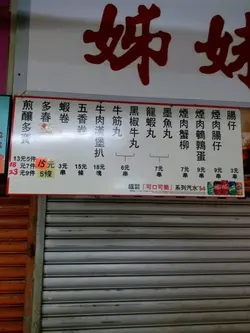 姊妹
煎釀多寶
13元5件
18元7件
23元9件
多春
15元
5條
蝦卷
3元
串
五香卷
15元
條
牛肉漢堡扒
18元
塊
牛筋丸
黑椒牛丸
6元
串
龍蝦丸
墨魚丸
7元
串
煙肉蟹柳
7元
串
煙肉鵪鶉蛋
9元
串
煙肉腸仔
9元
串
腸仔
3元
串
「可口可樂」系列汽水$4